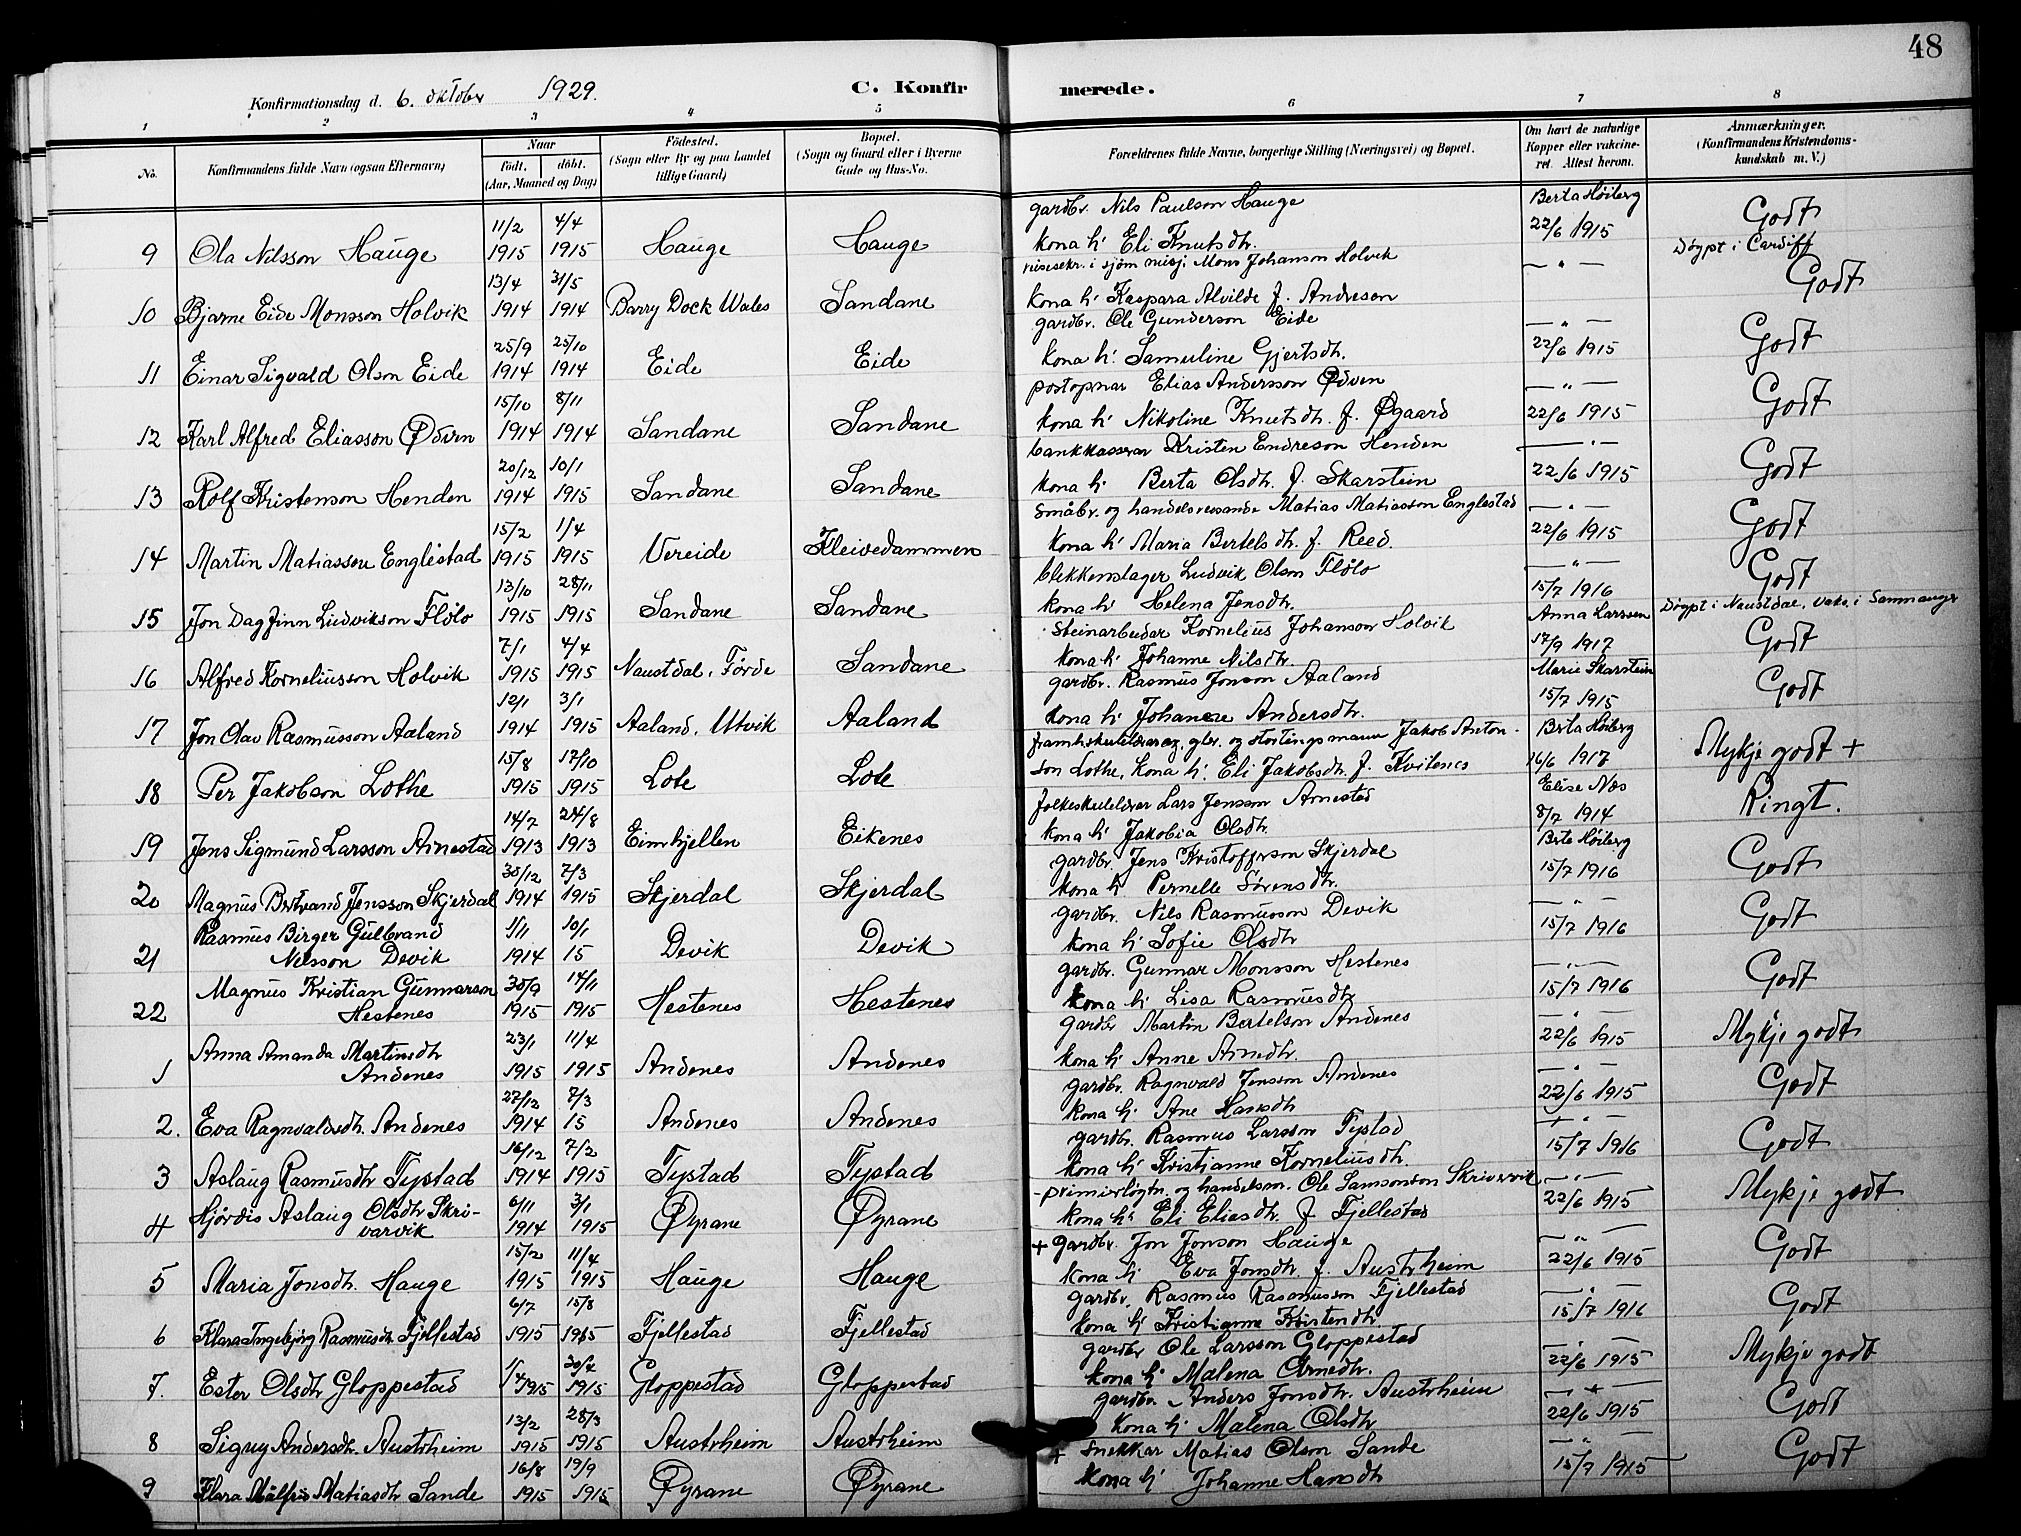 48
Konfirmationsdag d. 6. oktober 1929.
C. Konfirmerede.
1 2 3 4 5 6 7 8
No.
Konfirmandens fulde Navn (ogsaa Efternavn)
Naar
Födt. döbt.
(Aar, Maaned og Dag)
Födested.
(Sogn eller By og paa Landet tillige Gaard)
Bopæl.
(Sogn og Gaard eller i Byerne Gade og Hus-No.
Forældrenes fulde Navne, borgerlige Stilling (Næringsvei) og Bopæl.
Om havt de naturlige Kopper eller vakcineret. Attest herom.
Anmærkninger.
(Konfirmandens Kristendomskundskab m. V.)
9 Ola Nilsson Hauge 11/2 1915 4/4 1915 Hauge Hauge gardbr. Nils Paulson Hauge kona h: Eli Knutsdtr. Berta Höiberg 22/6 1915 Godt
10 Bjarne Eide Monsson Holvik 13/4 1914 31/5 1914 Barry Dock Wales Sandane reisesekr. i sjöm misj. Mons Johanson Holvik kona h: Kaspara Alvilde f. Andreson — " — Döypt i Cardiff Godt
11 Einar Sigvald Olson Eide 25/9 1914 25/10 1914 Eide Eide gardbr. Ole Gunderson Eide kona h: Samuline Gjertsdtr. — " — 22/6 1915 Godt
12 Karl Alfred Eliasson Ødven 15/10 1914 8/11 1914 Sandane Sandane postopnar Elias Andersson Ødven kona h: Nikoline Knutsdtr. f. Øgaard — " — 22/6 1915 Godt
13 Rolf Kristenson Henden 20/12 1914 10/1 1915 Sandane Sandane bankkasserar Kristen Endreson Henden kona h: Berta Olsdtr. f. Skarstein — " — 22/6 1915 Godt
14 Martin Matiasson Englestad 15/2 1915 1/4 1915 Vereide Kleivedammen småbr. og handelsreisande Matias Matiasson Englestad kona h: Maria Bertelsdtr. f. Reed. — " — 22/6 1915 Godt
15 Jon Dagfinn Ludvikson Flölo 13/10 1915 28/11 1915 Sandane Sandane blekkenslager Ludvik Olson Flölo kona h: Helena Jensdtr. — " — 15/7 1916 Godt
16 Alfred Korneliusson Holvik 7/1 1915 4/4 1915 Naustdal, Förde Sandane Steinarbeidar Kornelius Johanson Holvik kona h: Johanne Nilsdtr. Anna Larssen 17/9 1917 Döypt i Naustdal. Vaks. i Samnanger Godt
17 Jon Olav Rasmusson Aaland 12/1 1914 3/1 1915 Aaland, Utvik Aaland gardbr. Rasmus Jonson Aaland kona h: Johanne Andersdtr. Marie Skarstein 15/7 1915 Godt
18 Per Jakobson Lothe 15/8 1915 17/10 1915 Lote Lote framh.skulelærar og gbr. og stortingsmann Jakob Antonson Lothe, kona h: Eli Jakobsdtr. f. Kvitenes Berta Höiberg 16/6 1917 Mykje godt +
19 Jens Sigmund Larsson Arnestad 14/7 1913 24/8 1913 Eimhjellen Eikenes folkeskulelærer Lars Jensson Arnestad kona h: Jakobia Olsdtr. Elise Næs 8/7 1914 Ringt.
20 Magnus Bertrand Jensson Skjerdal 30/12 1914 7/3 1915 Skjerdal Skjerdal gardbr Jens Kristofferson Skjerdal kona h: Pernelle Sörensdtr. Berta Höiberg 15/7 1916 Godt
21 Rasmus Birger Gulbrand Nilsson Devik 1/11 1914 10/1 15 Devik Devik gardbr. Nils Rasmusson Devik kona h: Sofie Olsdtr — " — 15/7 1916 Godt
22 Magnus Kristian Gunnarson Hestenes 30/9 1915 14/11 1915 Hestenes Hestenes gardbr. Gunnar Monsson Hestenes kona h: Lisa Rasmusdtr — " — 15/7 1916 Godt
1 Anna Amanda Martinsdtr Andenes 23/1 1915 11/4 1915 Andenes Andenes gardbr Martin Bertelson Andenes kona h: Anne Arnedtr. — " — 22/6 1915 Mykje godt
2. Eva Ragnvaldsdtr. Andenes 27/12 1914 7/3 15 Andenes Andenes gardbr. Ragnvald Jenson Andenes kona h: Ane Hansdtr — " — 22/6 1915 Godt
3 Aslaug Rasmusdtr Tystad 16/12 1914 7/2 1915 Tystad Tystad gardbr. Rasmus Larsson Tystad kona h: Kristianne Korneliusdtr. — " — 15/7 1916 Godt
4 Hjördis Aslaug Olsdtr Skrivarvik 6/11 1914 3/1 1915 Øyrane Øyrane premierlöytn. og handelsm. Ole Samsonson Skrivervik kona h: Eli Eliasdtr. f Fjellestad — " — 22/6 1915 Mykje godt
5 Maria Jonsdtr. Hauge 15/2 1915 11/4 1915 Hauge Hauge + gardbr. Jon Jonson Hauge kona h: Eva Jonsdtr. f. Austrheim — " — 22/6 1915 Godt
6 Klara Ingebjörg Rasmusdtr Fjellestad 6/7 1915 15/8 1915 Fjellestad Fjellestad gardbr. Rasmus Rasmusson Fjellestad kona h: Kristianne Kristendtr — " — 15/7 1916 Godt
7. Ester Olsdtr Gloppestad 1/4 1915 1915 Gloppestad Gloppestad gardbr Ole Larsson Gloppestad kona h: Malena Arnedtr. — " — 22/6 1915 Mykje godt
8 Signy Andersdtr. Austrheim 13/2 1915 28/3 1915 Austrheim Austrheim gardbr. Anders Jonsdtr. Austrheim kona h: Malena Olsdtr — " — 22/6 1915 Godt
9 Klara Målfrid Matiasdtr Sande 16/8 1915 19/9 1915 Øyrane Øyrane + snekkar Matias Olson Sande kona h: Johanne Hansdtr — " — 15/7 1915 Godt